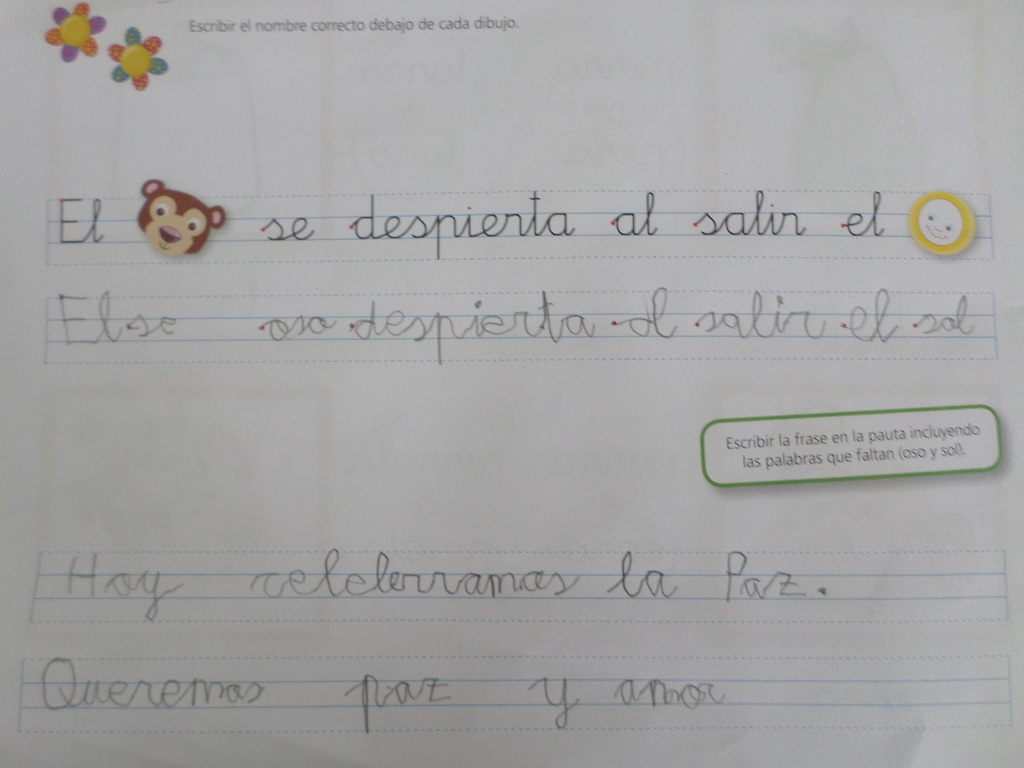 Escribir el nombre correcto debajo de cada dibujo.
El se despierta al salir el
El se oso despierta al salir el sol
Escribir la frase en la pauta incluyendo
las palabras que faltan (oso y sol).
Hoy celelerramos la Paz.
Queremos paz y amor